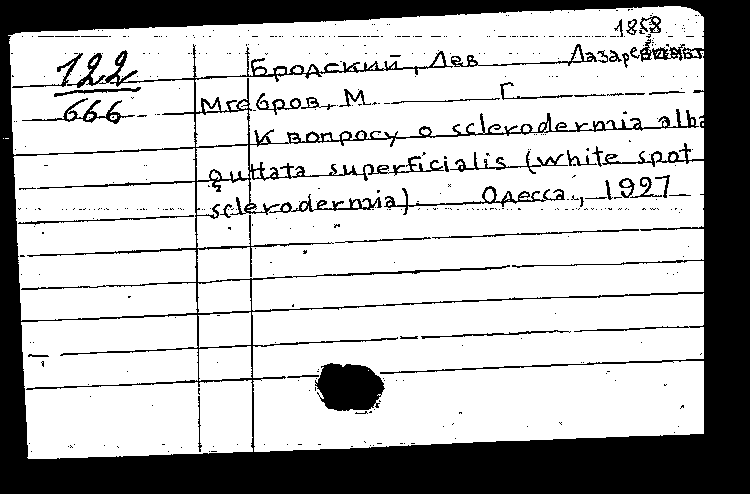 1858
122
666
Бродский, Лев Лазаревич
Мгебров, М. Г.
К вопросу о sclerodermia alba
guttata superficialis (white spot
sclerodermia). Одесса, 1927